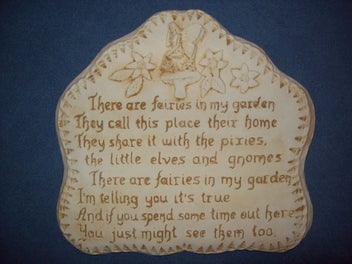 There are fairies in my garden
They call this place their home
They share it with the pixies,
the little elves and gnomes
There are fairies in my garden
I'm telling you it's true
And if you spend some time out here
You just might see them too.